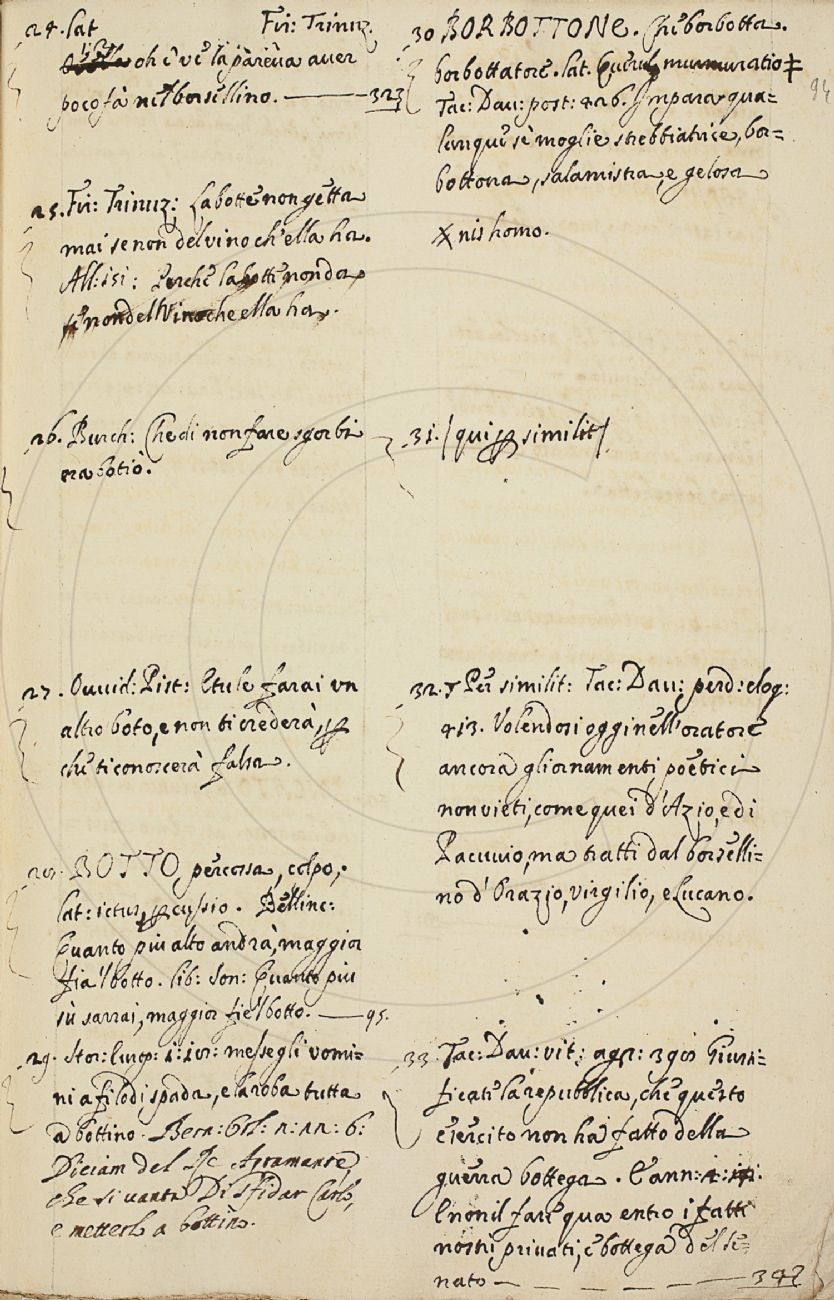 24. lat Fir: Trinuz.
oh è ve la pareva aver
poco fà nel borsellino. — 323
25. Fir: Trinuz: La botte non getta
mai se non del vino ch'ella ha.
All: 151: Perche la botte non da
se non del Vino che ella ha.
26. Burch: Che di non fare sgorbi
era botiò.
27. Ovvid: Pist: E tu le farai un
altro boto, e non ti crederà,
che ti conoscerà falsa.
28. BOTTO percossa, colpo,
lat: ictus, percussio. Bellinc:
Quanto più alto andrà, maggior
fia 'l botto. lib: Son: Quanto più
sù sarrai, maggior fie 'l botto. — 95.
29. Stor: Europ: 1: messe gli vomi=
ni a filo di spada, e la roba tutta
a bottino. Bern: Orl: 6:
Diciam del Re Agramante,
che si vanta Di sfidar Carlo,
e metterlo a bottino.
30 BORBOTTONE. Che borbotta.
borbottatore. lat. murmuratio
Tac: Dav: post: 426. Imparar qua=
lunque sè moglie strebbiatrice, bor=
bottona, salamistra, e gelosa
nis homo.
31. / qui per similit /
32. Per similit: Tac: Dav: perd: eloq:
413. Volendosi oggi nell'oratore
ancora gli ornamenti poetici
non vieti, come quei d'Azio, e di
Pacuvio, ma tratti dal borselli=
no d'Orazio, virgilio, e Lucano.
33. Tac: Dav: vit: agr: 398 Giusti=
ficate la repubblica, che questo
esercito non ha fatto della
guerra bottega. E ann:
E non il fare qua entro i fatti
nostri privati, è bottega del se=
nato — 342
94